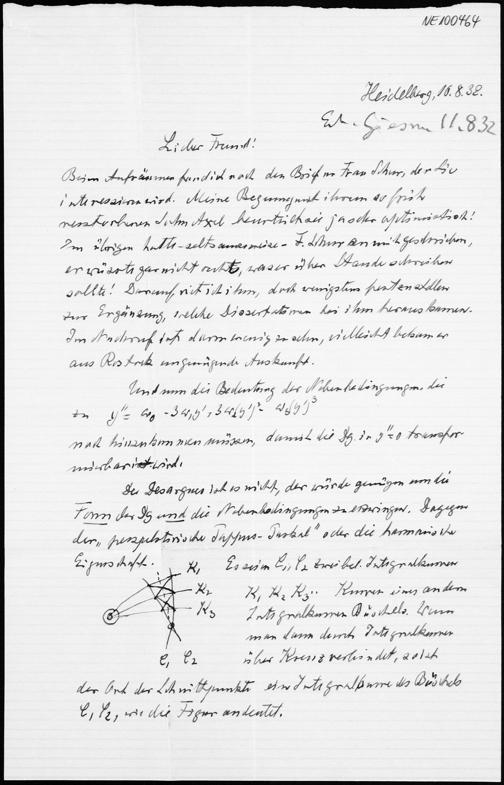 NE100464
Heidelberg, 10.8.32.
11.8.32
Lieber Freund!
Beim Aufräumen fand ich noch den Brief von Frau Schur, der Sie
interessieren wird. Meine Begegnung mit ihrem so früh
verstorbenen Sohn Axel beurteilt sie ja sehr optimistisch!
Im übrigen hatte - seltsamerweise - F. Schur an mich geschrieben,
er wüsste gar nicht recht, was er über Staude schreiben
sollte! Darauf riet ich ihm, doch wenigstens festzustellen
zur Ergänzung, welche Dissertationen bei ihm herauskamen.
Im Nachruf ist darin wenig zu sehn, vielleicht bekam er
aus Rostock ungenügende Auskunft.
Und nun die Bedeutung der Nebenbedingungen die
zu y'' = ω₀ - 3ω₁y' + 3ω₂(y')² - ω₃(y')³
noch hinzukommen müssen, damit die Dg. in y''=0 transfor
mierbar wird.
Der Desargues ist es nicht, der würde genügen um die
Form der Dg und die Nebenbedingungen zu erzwingen. Dagegen
der „perspektivische Pappus-Pascal" oder die harmonische
Eigenschaft.
Es seien C₁, C₂ zwei bel. Integralkurven
K₁ K₂ K₃ .. Kurven eines andern
Integralkurven Büschels. Wenn
man dann durch Integralkurven
über Kreuz verbindet, so ist
K₁
K₂
K₃
C₁ C₂
der Ort der Schnittpunkte eine Integralkurve des Büschels
C₁ C₂, wie die Figur andeutet.